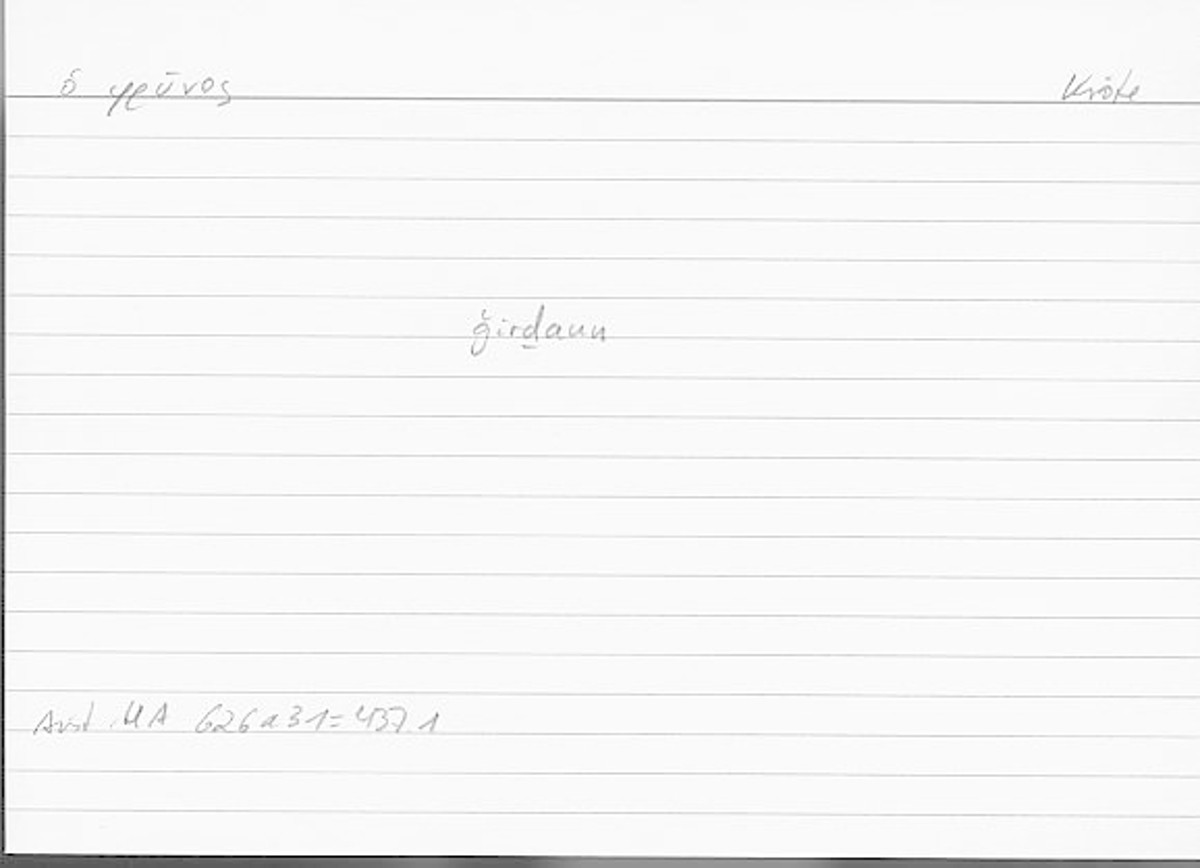 ὁ φρῦνος Kröte
ǧirḏaun
Arist. HA 626a31=437.1